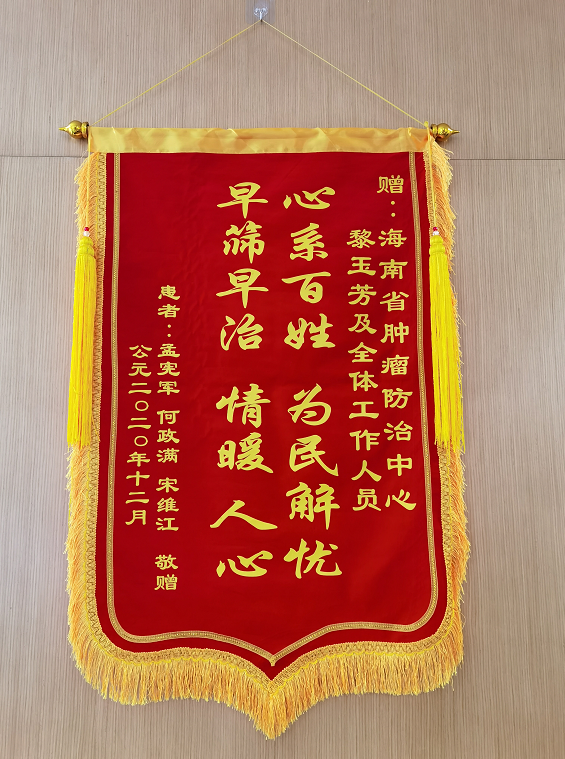 赠：海南省肿瘤防治中心
黎玉芳及全体工作人员
心系百姓 为民解忧
早筛早治 情暖人心
患者：孟宪军 何政满 宋维江 敬赠
公元二〇二〇年十二月